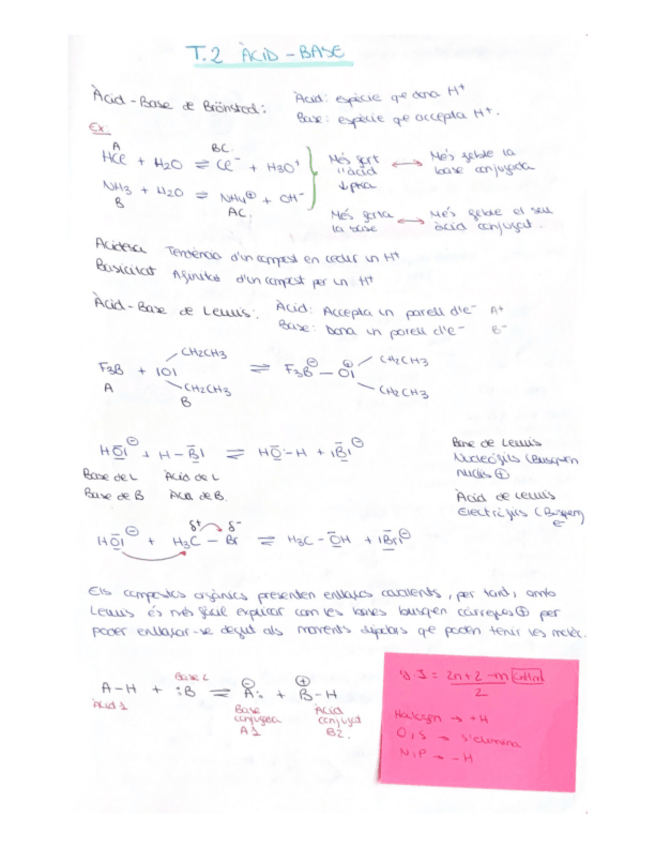 T.2 ÀCID - BASE
Àcid - Base de Brönsted:
Àcid: espècie qe dona H⁺
Base: espècie qe accepta H⁺.
Ex:
A BC
HCl + H2O ⇌ Cl⁻ + H3O⁺
NH3 + H2O ⇌ NH4⊕ + OH⁻
B AC.
Més fort ↔ Més feble la
l'àcid base conjugada
↓pka
Més forta ↔ Més feble el seu
la base àcid conjugat.
Acidesa Tendència d'un compost en cedir un H⁺
Basicitat Afinitat d'un compost per un H⁺
Àcid - Base de Lewis: Àcid: Accepta un parell d'e⁻ A⁺
Base: Dona un parell d'e⁻ B⁻
CH2CH3 CH2CH3
F3B + IOI ⇌ F3B⊖ - OI⊕
A CH2CH3 CH2CH3
B
HOI⊖ + H - BI ⇌ HO - H + IBI⊖
Base de L Àcid de L
Base de B Àcid de B.
Base de Lewis
Nucleòfils (Busquen
nuclis ⊕)
Àcid de Lewis
Electròfils (Busquen)
e⁻
δ⁺ δ⁻
HOI⊖ + H3C - Br ⇌ H3C - OH + IBrI⊖
Els compostos orgànics presenten enllaços covalents, per tant, amb
Lewis és més fàcil explicar com les bases busquen càrregues ⊕ per
poder enllaçar-se degut als moments dipolars qe poden tenir les molèc.
Base 2
A-H + :B ⇌ A:⊖ + B-H⊕
Àcid 1 Base Àcid
conjugada conjugat
A1 B2.
g.I = 2n+2-m
2
Halogen → +H
O,S → s'elimina
N,P → -H